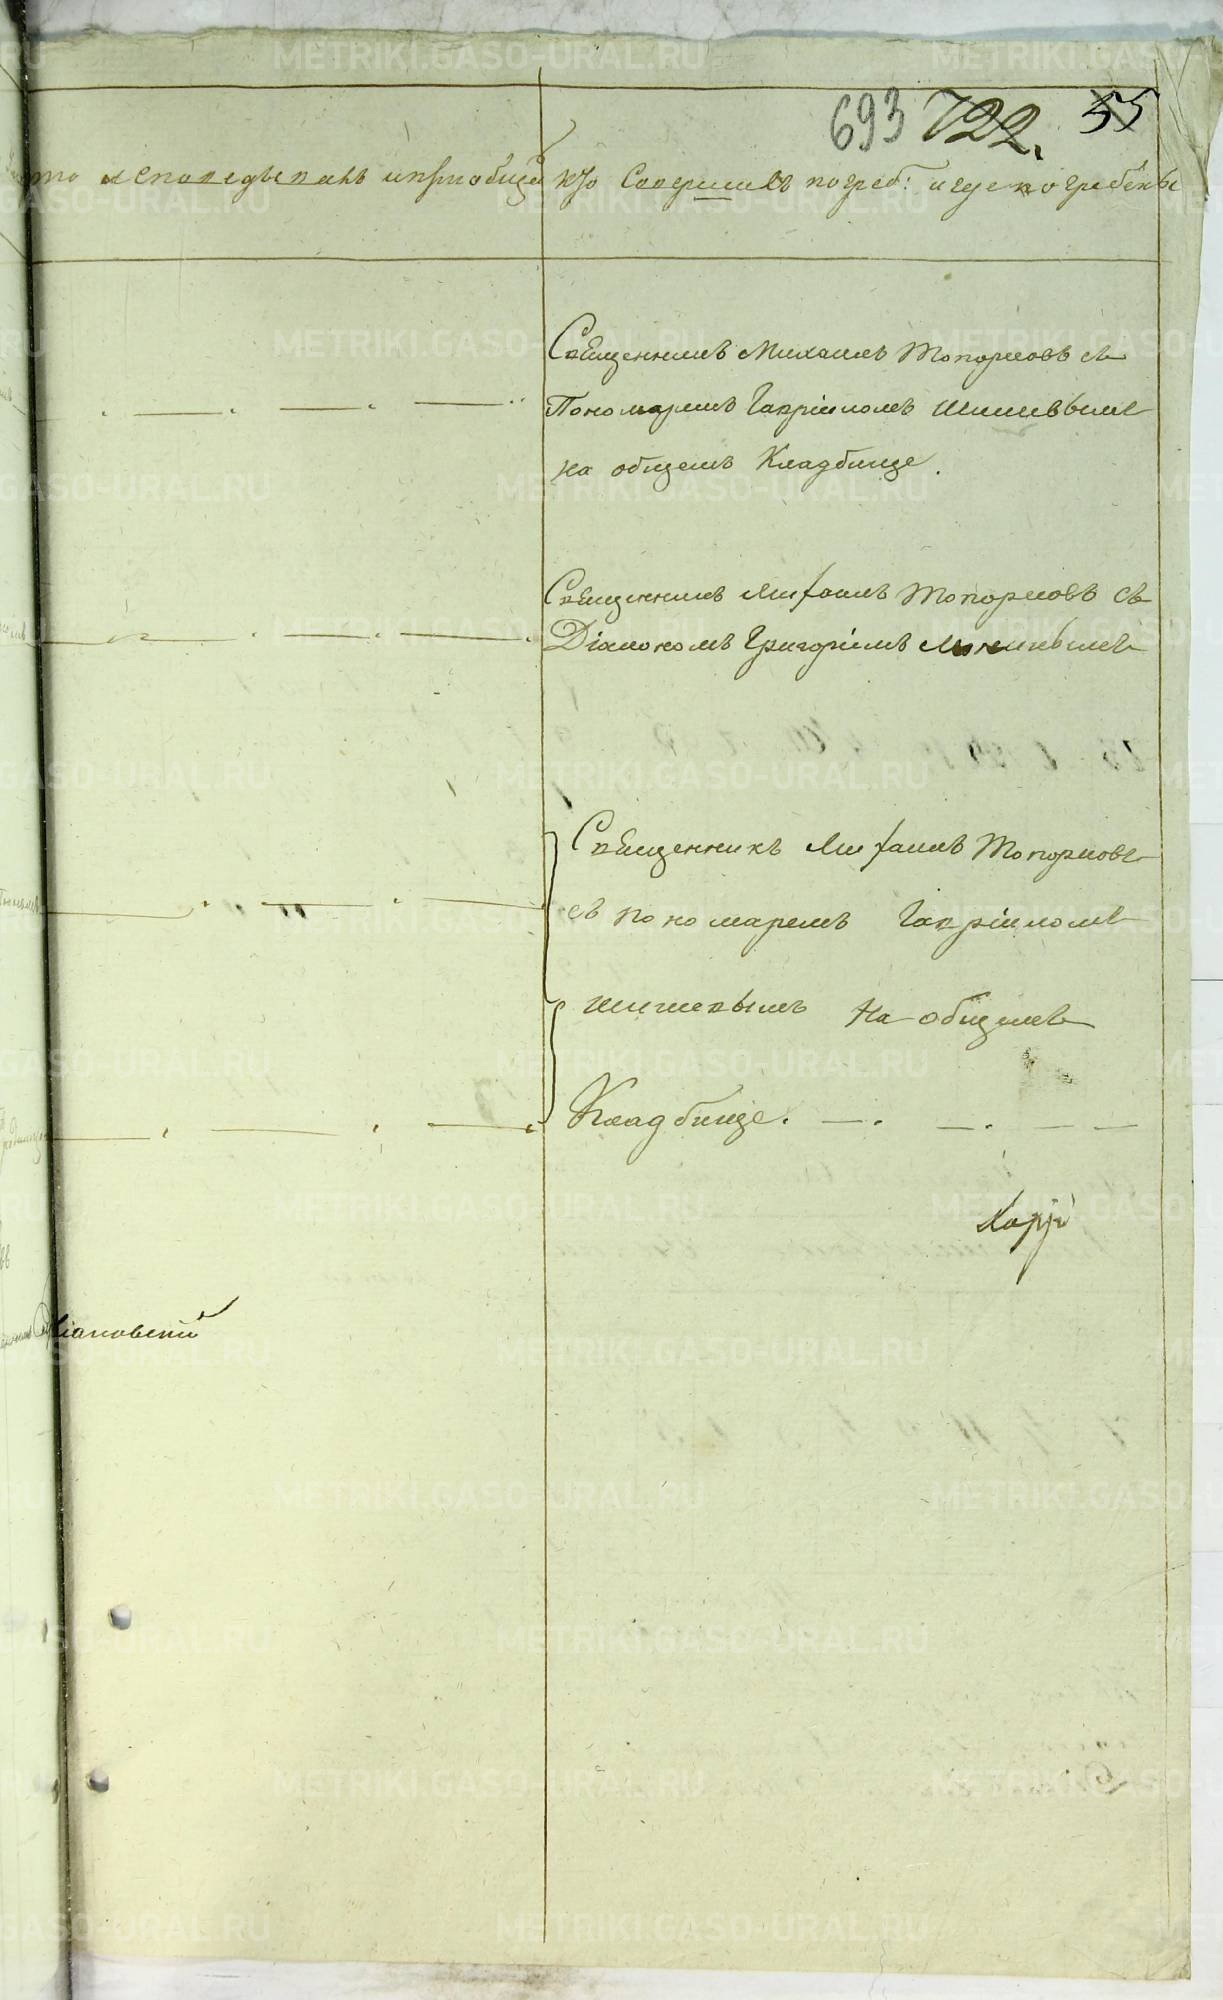 693 722. 55
кто исповедывалъ и приобщи кто совершилъ погреб: и где погребены
Священникъ Михаилъ Топорковъ съ
Пономаремъ Гавріиломъ
на общемъ Кладбище.
Священникъ Михаилъ Топорковъ съ
Діакономъ Григоріемъ
Священникъ Михаилъ Топорковъ
съ пономаремъ Гавріиломъ
Шишевымъ на общемъ
Кладбище.
METRIKI.GASO-URAL.RU